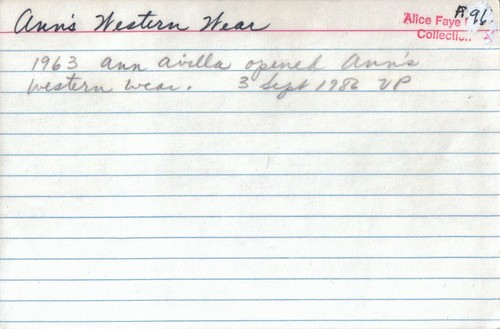 Ann's Western Wear
Alice Faye
96
1963 Ann Avilla opened Ann's
Western Wear. 3 Sept 1986 VP